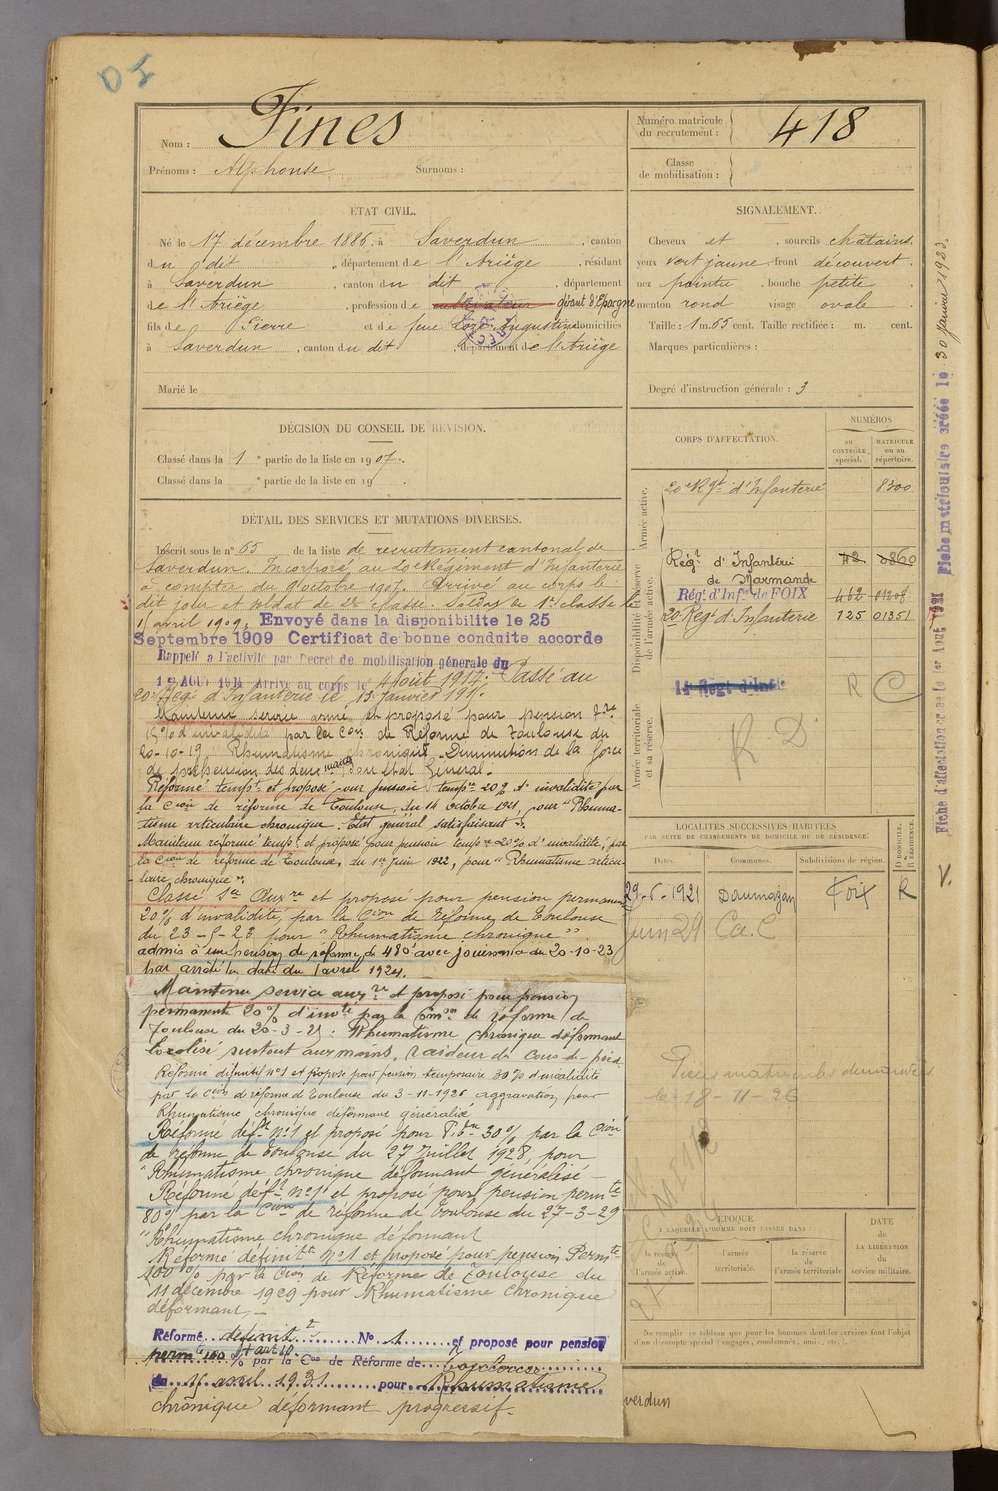 Nom : Fines
Prénoms : Alphonse Surnoms :
Numéro matricule du recrutement : 418
Classe de mobilisation :
ÉTAT CIVIL.
Né le 17 décembre 1886, à Saverdun, canton
du dit, département de l'Ariège, résidant
à Saverdun, canton du dit, département
de l'Ariège, profession de cultivateur gérant d'Epargne
fils de Pierre et de feue Augustine domiciliés
à Saverdun, canton du dit, département de l'Ariège
Marié le
SIGNALEMENT.
Cheveux et, sourcils châtains.
yeux vert jaune front découvert.
nez pointu, bouche petite,
menton rond visage ovale
Taille : 1 m. 65 cent. Taille rectifiée : m. cent.
Marques particulières :
Degré d'instruction générale : 3
DÉCISION DU CONSEIL DE RÉVISION.
Classé dans la 1e partie de la liste en 1907.
Classé dans la e partie de la liste en 19
DÉTAIL DES SERVICES ET MUTATIONS DIVERSES.
Inscrit sous le n° 65 de la liste de recrutement cantonal de
Saverdun. Incorporé au 20e Régiment d'Infanterie
à compter du 9 octobre 1907. Arrivé au corps le
dit jour et soldat de 2e classe. Soldat de 1re classe le
avril 1909. Envoyé dans la disponibilite le 25
Septembre 1909 Certificat de bonne conduite accorde
Rappelé à l'activité par Décret de mobilisation générale du
1er AOU 1914 Arrivé au corps le 4 Aout 1914. Passé au
20e Régt d'Infanterie le 15 Janvier 191
Maintenu service armé, et proposé pour pension
15% d'invalidité par la Con de Réforme de Toulouse du
20-10-19. Rhumatisme chronique. Diminution de la force
de préhension des deux mains Bon état Général.
Réformé tempre et proposé pour pension tempre 20% d'invalidité par
la Cion de réforme de Toulouse, du 14 octobre 1921, pour "Rhuma-
tisme articulaire chronique. Etat général satisfaisant".
Maintenu réformé tempre et proposé pour pension tempre 20% d'invalidité, par
la Cion de réforme de Toulouse, du 1er juin 1922, pour "Rhumatisme articu-
laire chronique".
Classé Sce Auxre et proposé pour pension permanente
20% d'invalidité, par la Cion de Réforme de Toulouse
du 23-5-23 pour "Rhumatisme chronique".
admis à une pension de réforme de 480f avec jouissance du 20-10-23
par arrêté en date du 1 avril 1924.
Maintenu service auxre et proposé pour pension
permanente 20% d'invté par la Comon de réforme de
Toulouse du 20-3-25 : Rhumatisme chronique déformant
localisé surtout aux mains, raideur du cou-de-pied
Réformé définitif n°1 et proposé pour pension temporaire 30% d'invalidité
par la Cion de réforme de Toulouse du 3-11-1926 aggravation pour
Rhumatisme chronique déformant généralisé
Réformé défit n°1 et proposé pour P. 30% par la Cion
de réforme de Toulouse du 27 juillet 1928, pour
"Rhumatisme chronique déformant généralisé –
Réformé défit n°1 et proposé pour pension permte
80% par la Cion de réforme de Toulouse du 27-3-29
"Rhumatisme chronique déformant
Réformé définitt n°1 et proposé pour pension Permte
100% par la Cion de Réforme de Toulouse du
11 décembre 1929 pour Rhumatisme chronique
déformant –
Réformé définitt N° 1 et proposé pour pension
permte 100 % + art 10 par la Con de Réforme de Toulouse
du 15 avril 1931 pour Rhumatisme
chronique déformant progressif.
CORPS D'AFFECTATION.
NUMÉROS
AU CONTRÔLE spécial.
MATRICULE ou au répertoire.
Armée active.
20e Régt d'Infanterie 8300
Disponibilité et réserve de l'armée active.
Régt d'Infanterie de Marmande
Régt d'Infie de FOIX 462 01208
20e Régt d'Infanterie 725 01351
14e Régt d'Infie R C
Armée territoriale et sa réserve.
R D
LOCALITÉS SUCCESSIVES HABITÉES
PAR SUITE DE CHANGEMENTS DE DOMICILE OU DE RÉSIDENCE.
Dates. Communes. Subdivisions de région. D DOMICILE. R RÉSIDENCE.
29-6-1921 Daumazan Foix R
juin 29
Pièces matricules demandées
le 18-11-26
ÉPOQUE
A LAQUELLE L'HOMME DOIT PASSER DANS :
la réserve de l'armée active.
l'armée territoriale.
la réserve de l'armée territoriale
DATE DE LA LIBÉRATION du service militaire.
Ne remplir ce tableau que pour les hommes dont les services font l'objet
d'un décompte spécial (engagés, condamnés, omis, etc.).
verdun
Fiche matriculaire créée le 30 Janvier 1923.
Fiche d'affectation créée le 1er Aout 1921
V.